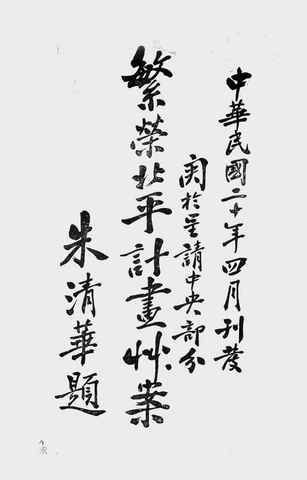 中華民國二十年四月刊發
関於呈請中央部分
繁榮北平計畫艸案
朱清華題